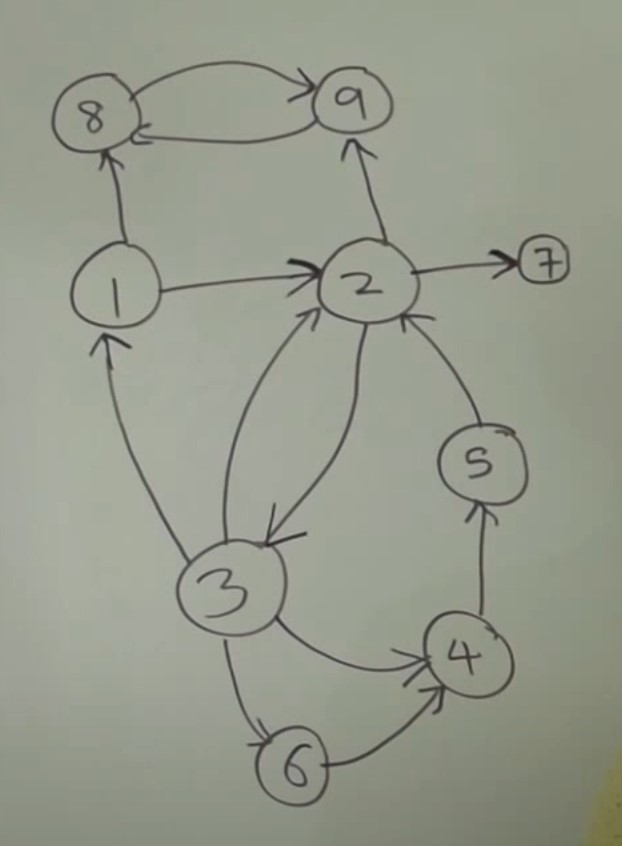 8 9
1 2 7
5
3
4
6